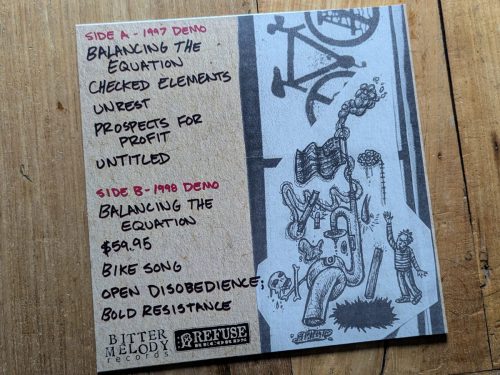 SIDE A - 1997 DEMO
BALANCING THE
EQUATION
CHECKED ELEMENTS
UNREST
PROSPECTS FOR
PROFIT
UNTITLED
SIDE B - 1998 DEMO
BALANCING THE
EQUATION
$59.95
BIKE SONG
OPEN DISOBEDIENCE;
BOLD RESISTANCE
BITTER
MELODY
records
REFUSE
RECORDS